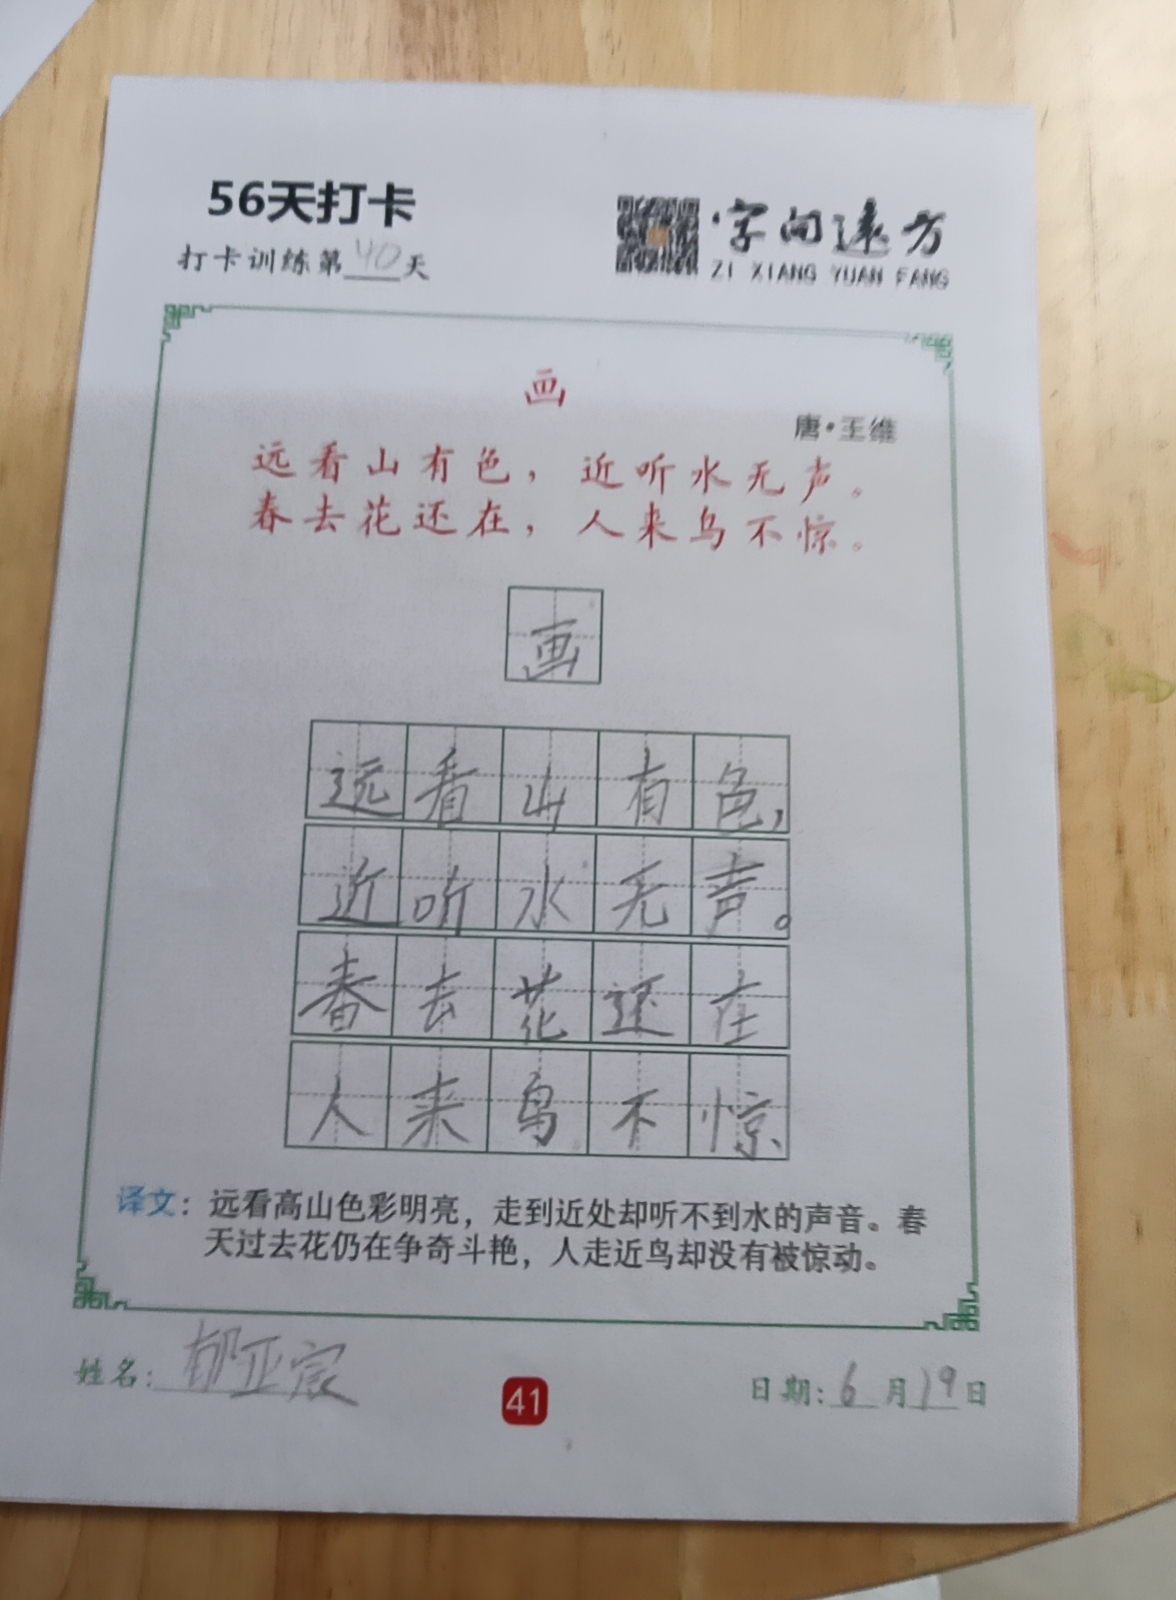 56天打卡
打卡训练第40天
字向远方
ZI XIANG YUAN FANG
画
唐·王维
远看山有色，近听水无声。
春去花还在，人来鸟不惊。
画
远看山有色，
近听水无声。
春去花还在
人来鸟不惊
译文：远看高山色彩明亮，走到近处却听不到水的声音。春
天过去花仍在争奇斗艳，人走近鸟却没有被惊动。
姓名：郁亚宸
41
日期：6月19日